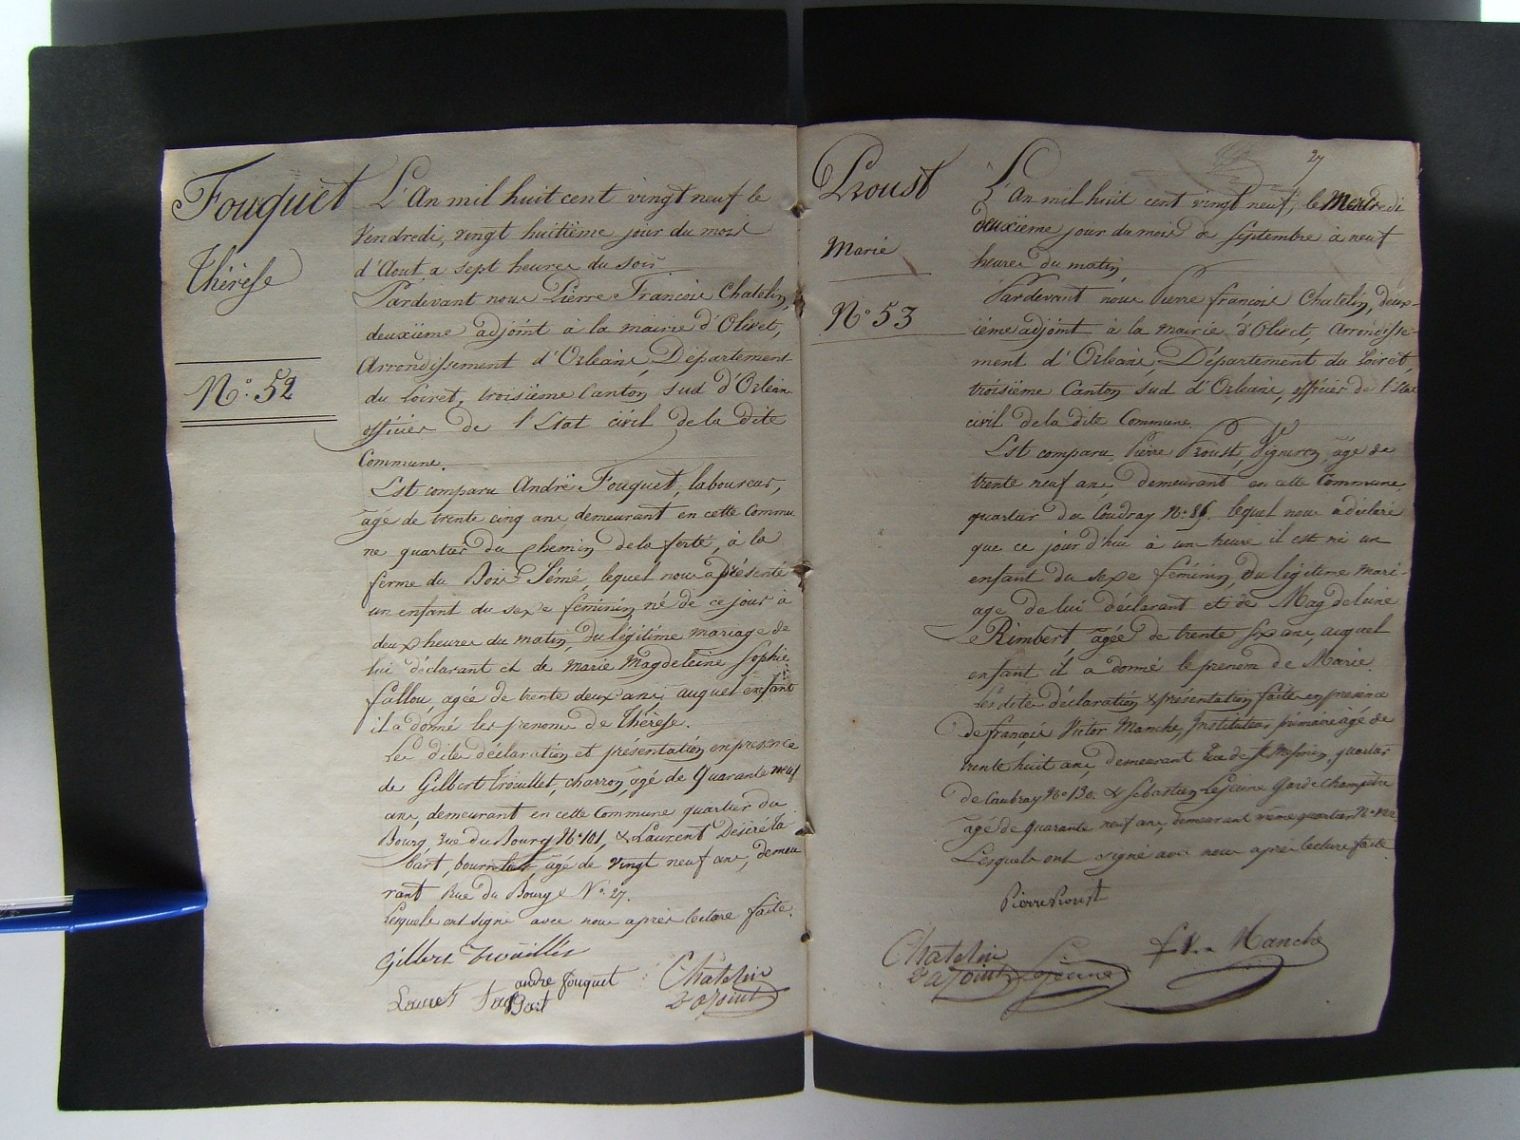 Fouquet
Thérèse
N.° 52
L'An mil huit cent vingt neuf le
Vendredi, vingt huitième jour du mois
d'Aout a sept heures du soir
Pardevant nous Pierre François Chatelin,
deuxième adjoint à la mairie d'Olivet,
Arrondissement d'Orléans, Département
du Loiret, troisième Canton Sud d'Orléans
officier de l'Etat civil de la dite
Commune.
Est comparu André Fouquet, laboureur,
âgé de trente cinq ans, demeurant en cette Commu
ne quartier du chemin de la ferté, à la
ferme du Bois Sémé, lequel nous a présenté
un enfant du sexe féminin né de ce jour à
deux heures du matin, du légitime mariage de
lui déclarant et de marie Magdeleine Sophie
fallou, agée de trente deux ans, auquel enfant
il a donné les prenoms de Thérèse.
Les dite déclaration et présentation en presence
de Gilbert Trouillet, charron, âgé de Quarante neuf
ans, demeurant en cette Commune quartier du
Bourg, rue du Bourg N° 101, & Laurent Désiré Ta
bart, âgé de vingt neuf ans, demeu
rant Rue du Bourg N°. 27.
Lesquels ont signé avec nous après lecture faite.
Gilbert Trouillet
andre fouquet
Chatelin
D'adjoint
27
Proust
Marie
N° 53
L'An mil huit cent vingt neuf, le Mercredi
deuxième jour du mois de septembre à neuf
heures du matin,
Pardevant nous Pierre françois Chatelin, deux-
ième adjoint à la mairie d'Olivet, Arrondisse-
ment d'Orléans, Département du Loiret,
troisième Canton Sud d'Orléans, officier de l'Etat
civil de la dite Commune.
Est comparu Pierre Proust, Vigneron, âgé de
trente neuf ans, demeurant en cette Commune,
quartier du Coudray N° 86. lequel nous a déclaré
que ce jour d'hui à une heure il est né un
enfant du sexe féminin, du légitime mari-
age de lui déclarant et de Magdeleine
Rimbert, agée de trente six ans, auquel
enfant il a donné le prenom de Marie
Les dite déclaration & présentation faite en presence
de françois Victor Manche, Instituteur primaire âgé de
trente huit ans, demeurant Rue de St Mesmin, quartier
de Caubray N° 130. & Sébastien Lejeune Garde Champêtre
âgé de quarante neuf ans, demeurant même quartier
Lesquels ont signé avec nous après lecture faite.
Pierre Proust
Chatelin
D'adjoint
Lejeune
f. V. Manche